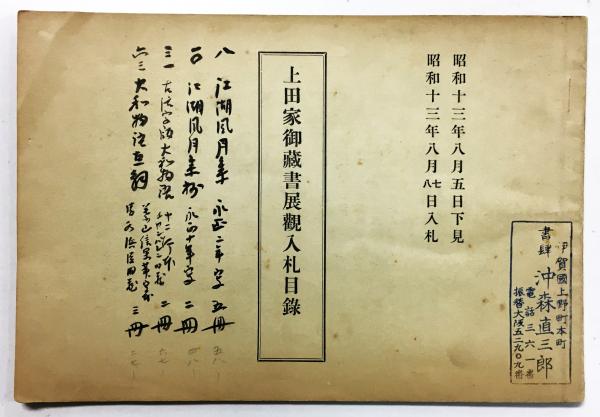 昭和十三年八月五日下見
昭和十三年八月七八日入札
上田家御藏書展觀入札目錄
伊賀國上野町本町
書肆 沖森直三郎
電話三六一番
振替大阪五二九〇九番
八 江湖風月集 永正二年写 五冊
江湖風月集抄 永正十年写 二冊
三一 古活字版大和物語 十二行本 二冊
六三 大和物語直解 三冊